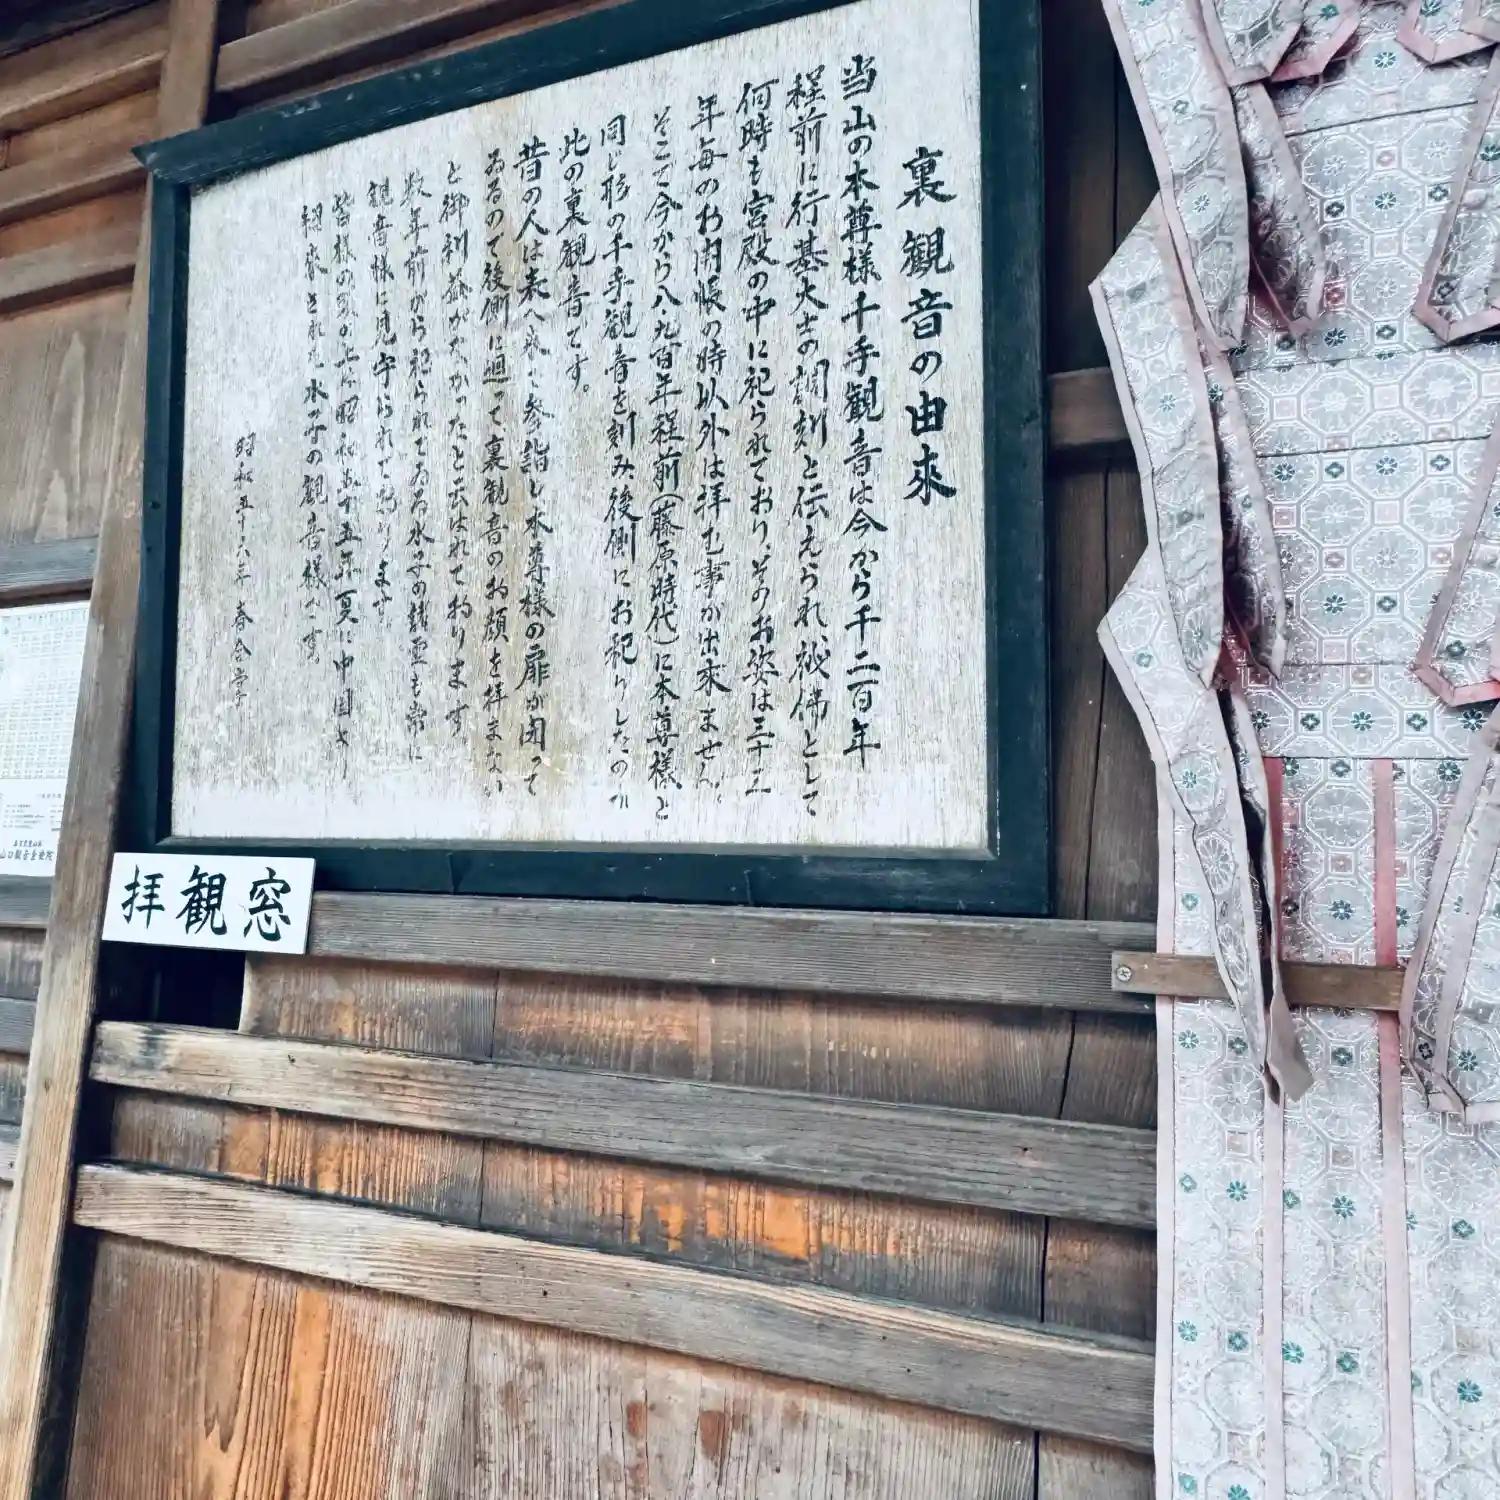 裏観音の由来
当山の本尊様千手観音は今から千二百年
程前に行基大士の調刻と伝えられ、秘佛として
何時も宮殿の中に祀られており、そのお姿は三十三
年毎のお開帳の時以外は拝む事が出来ません。
そこで今から八、九百年程前(藤原時代)に本尊様と
同じ形の千手観音を刻み、後側にお祀りしたのが
此の裏観音です。
昔の人は表へ来て参詣し本尊様の扉が閉って
ゐるので後側に廻って裏観音のお顔を拝まない
と御利益がなかったと云はれて おります
数年前から祀られてゐる水子の 霊も常に
観音様に見守られて居ります。
皆様の 上に昭和五十五年夏に中国より
された水 の観音様 
昭和五十六年 春
拝観窓
山口観音金乗院